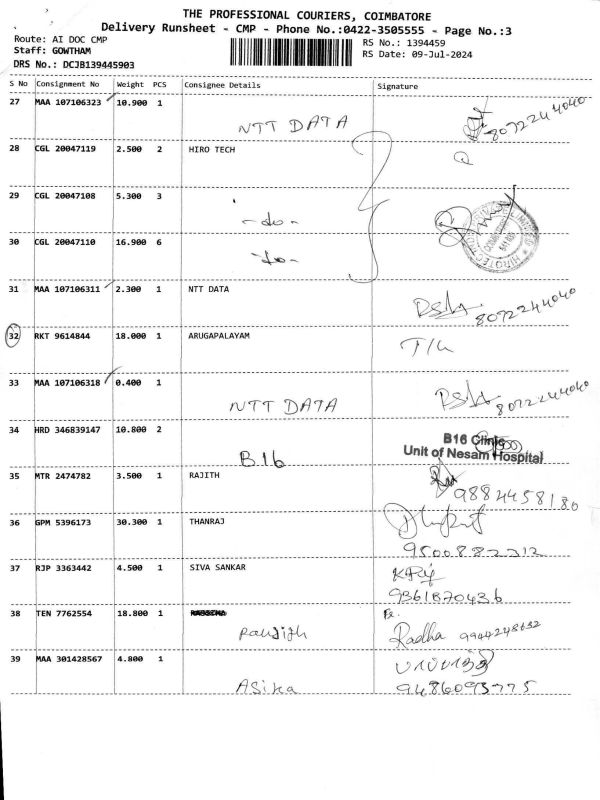 THE PROFESSIONAL COURIERS, COIMBATORE
Delivery Runsheet - CMP - Phone No.:0422-3505555 - Page No.:3
Route: AI DOC CMP
Staff: GOWTHAM
DRS No.: DCJB139445903
RS No.: 1394459
RS Date: 09-Jul-2024
S No Consignment No Weight PCS Consignee Details Signature
27 MAA 107106323 10.900 1 NTT DATA 8072244040
28 CGL 20047119 2.500 2 HIRO TECH
29 CGL 20047108 5.300 3 -do-
30 CGL 20047110 16.900 6 -do-
31 MAA 107106311 2.300 1 NTT DATA 8072244040
32 RKT 9614844 18.000 1 ARUGAPALAYAM
33 MAA 107106318 0.400 1 NTT DATA 8072244040
34 HRD 346839147 10.800 2 B16
B16 Clinic
Unit of Nesam Hospital
35 MTR 2474782 3.500 1 RAJITH 9884458180
36 GPM 5396173 30.300 1 THANRAJ
9500882212
37 RJP 3363442 4.500 1 SIVA SANKAR
9361870436
38 TEN 7762554 18.800 1 Radha 9944248632
39 MAA 301428567 4.800 1 Asika
9486093775